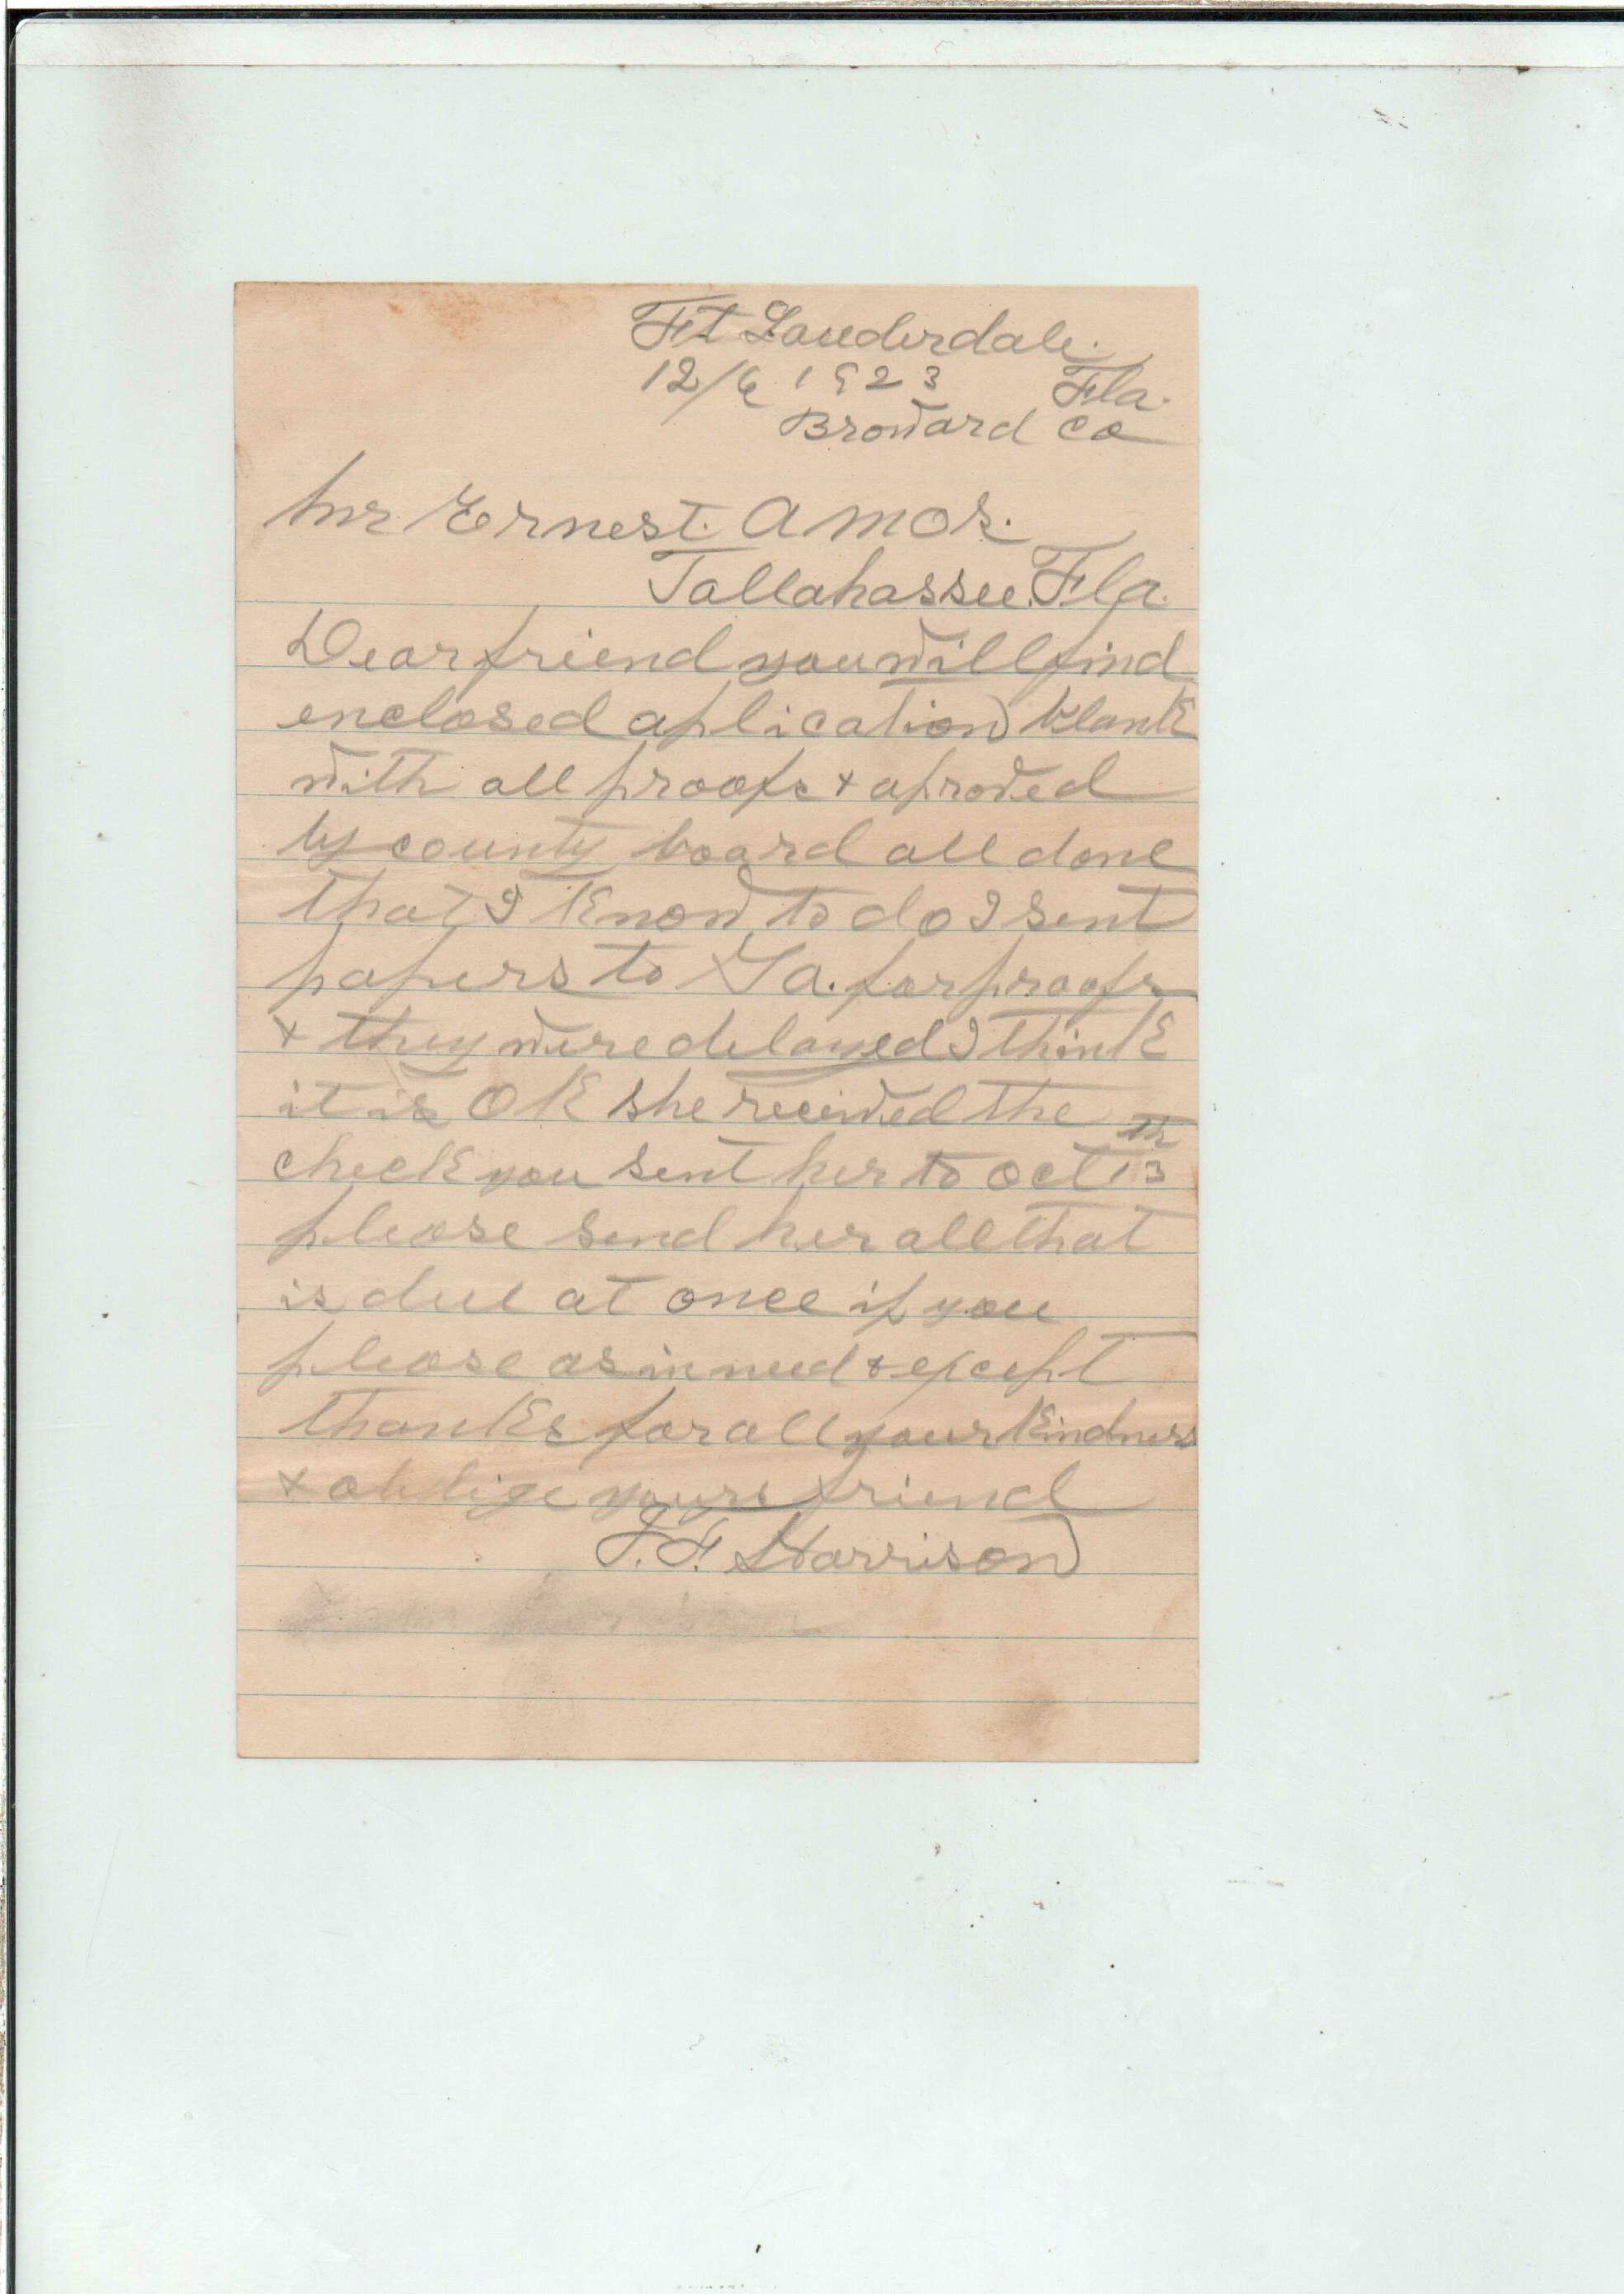 Ft Lauderdale.
12/6 1923 Fla.
Broward Co
Mr Ernest. Amos.
Tallahassee. Fla.
Dear friend you will find
enclosed aplication blank
with all proofs + aproved
by county board all done
that I know to do I sent
papers to Ga. for proofs
+ they were delayed I think
it is OK she received the
check you sent her to Oct 13th
please send her all that
is due at once if you
please as in need + except
thanks for all your kindness
+ oblige yours friend
Harrison